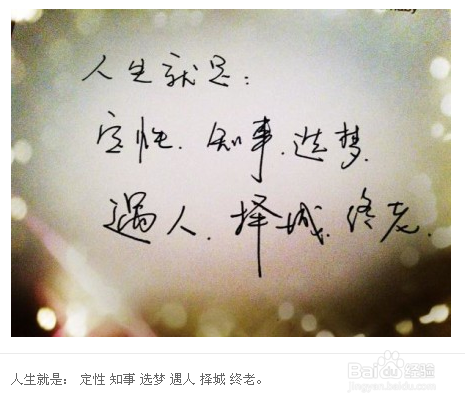 人生就是：
定性.知事.选梦.
遇人.择城.终老.
人生就是： 定性 知事 选梦 遇人 择城 终老。
Baidu经验
jingyan.baidu.com